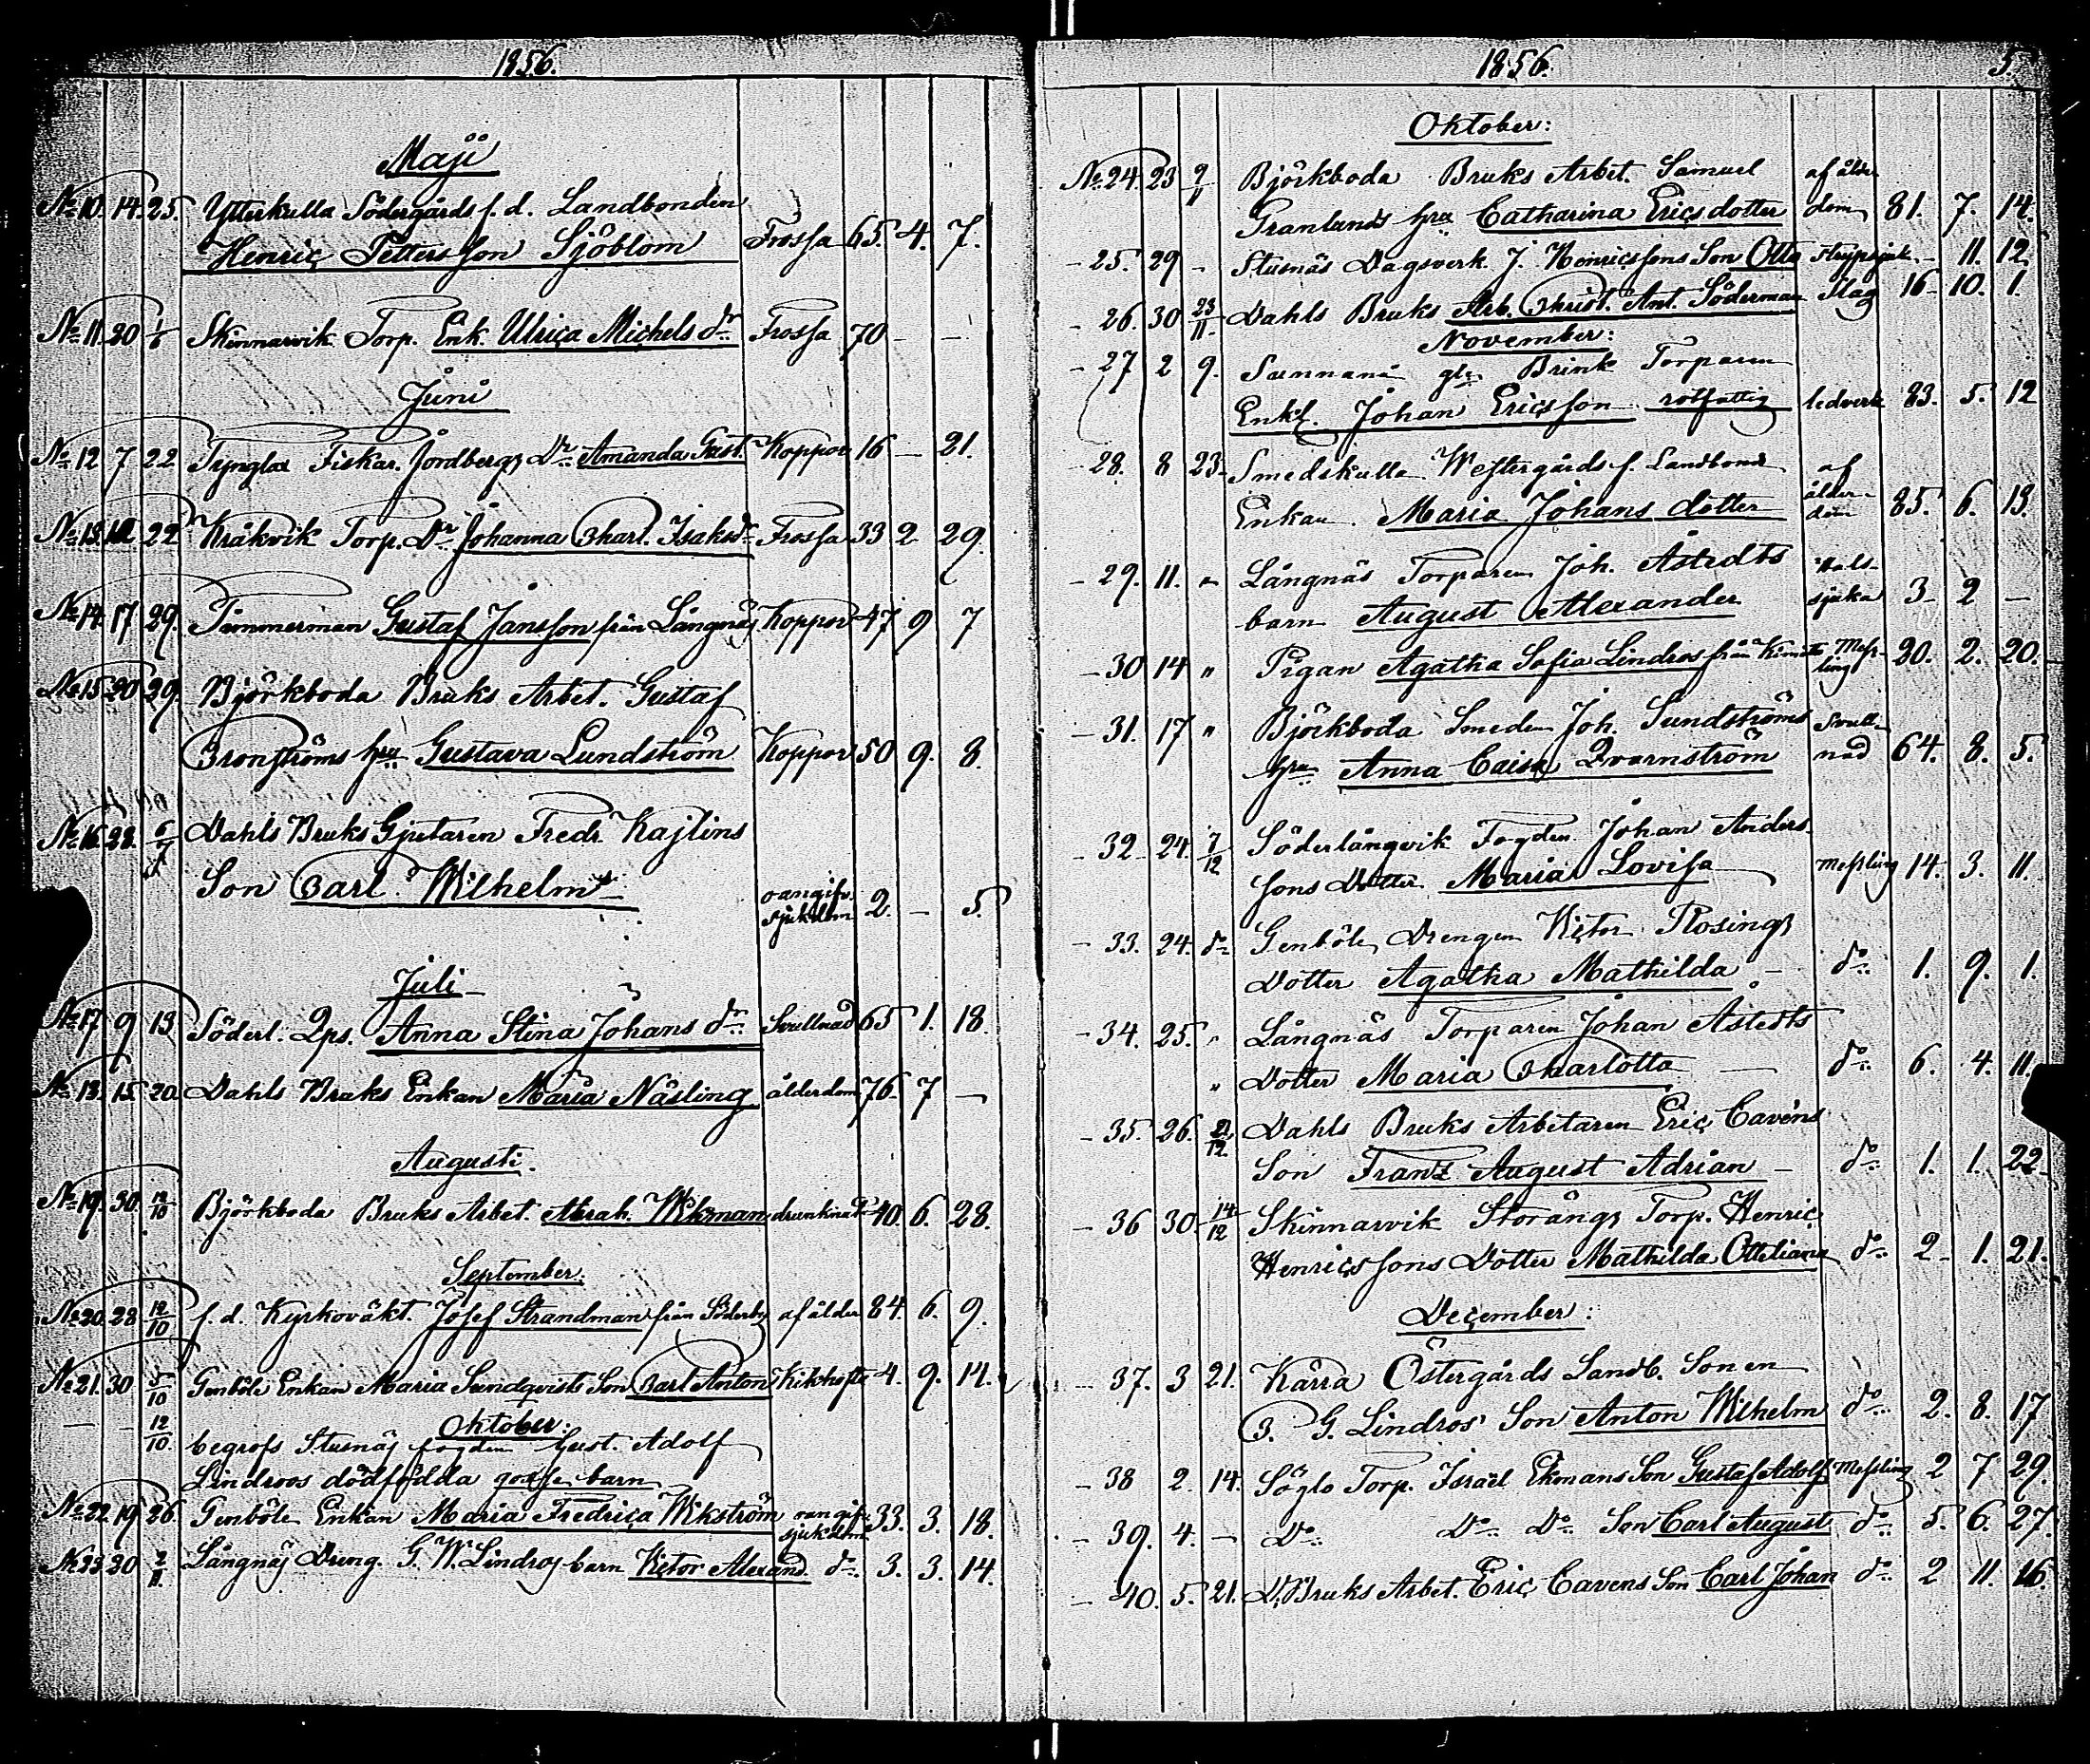 1856.
Maji
No 10. 14. 25. Ytterkulla Södergårds f. d. Landbonden
Henric Pettersson Sjöblom Frossa 65. 4. 7.
No 11. 20 1/6 Skinnarvik Torp. Enk. Ulrica Michels dr Frossa 70 - -
Juni
No 12 7 22 Tynglax Fiskar. Jordbergs Dr Amanda Gust. Koppor 16 - 21.
No 13. 12 22 Kråkvik Torp. Dr Johanna Charl. Isaksdr Frossa 33 2 29.
No 14. 17 29. Timmerman Gustaf Jansson från Långnäs Koppor 47 9 7
No 15. 20 29. Björkboda Bruks Arbet. Gustaf
Cronströms hru Gustava Lundström Koppor 50 9. 8.
No 16. 28. 6/7 Dahls Bruks Gjutaren Fredr. Kajlins
Son Carl Wilhelm oangifv. sjukdom 2. - 5.
Juli
No 17 9 13 Söderl. Qps. Anna Stina Johans dr Svullnad 65 1. 18.
No 18. 15 20. Dahls Bruks Enkan Maria Näsling ålderdom 76. 7 -
Augusti.
No 19. 30. 12/10 Björkboda Bruks Arbet. Abrah. Wikman drunknat 40. 6. 28.
September.
No 20. 28 12/10 f. d. Kyrkoväkt. Josef Strandman från Söderby af ålder 84. 6. 9.
No 21. 30 5/10 Genböle Enkan Maria Sundqvists Son Carl Anton Kikhosta 4. 9. 14.
Oktober:
— - 12/10. begrofs Stusnäs fogden Gust. Adolf
Lindroos dödfödda gosse barn
No 22. 19 26. Genböle Enkan Maria Fredrica Wikström oangifv. sjukdom 33. 3. 18.
No 23. 20 2/11. Långnäs Dreng. G. W. Lindros barn Victor Alexand. do 3. 3. 14.
1856. 5.
Oktober:
No 24. 23 9/11 Björkboda Bruks Arbet. Samuel af ålder
Granlunds hru Catharina Ericsdotter dom 81. 7. 14.
- 25. 29 - Stusnäs Dagsverk. J. Henricssons Son Otto Strypsjuk. - 11. 12.
- 26. 30 23/11. Dahls Bruks Arb. Christ. Ant. Söderman Slag 16- 10. 1.
November:
- 27 2 9. Sunnanå Brink Torparen
Enkl. Johan Ericsson rotfattig ledverk 83. 5. 12
28. 8 23. Smedskulla Westergårds f. Landbonde af
Enkan. Maria Johans dotter ålder dom 85. 6. 13.
- 29. 11. " Långnäs Torparen Joh. Åstedts Hals-
barn August Alexander sjuka 3 - 2 -
- 30 14 " Pigan Agatha Sofia Lindros från Kimito Mess-ling 20. 2. 20.
- 31. 17 " Björkboda Smeden Joh. Sundströms Svull-
hru Anna Caisa Qvarnström nad 64. 8. 5.
- 32 - 24. 7/12 Söderlångvik Fogden Johan Anders-
sons Dotter Maria Lovisa Messling 14. 3. 11.
- 33. 24. do Genböle Drengen Victor Rosings
Dotter Agatha Mathilda - do 1. 9. 1.
- 34. 25. " Långnäs Torparen Johan Åstedts
" Dotter Maria Charlotta — do 6. 4. 11.
- 35. 26. 21/12 Dahls Bruks Arbetaren Eric Cavéns
Son Franz August Adrian - do 1. 1. 22
- 36 30. 14/12 Skinnarvik Storängs Torp. Henric
Henricssons Dotter Mathilda Otteliana do 2 - 1. 21.
December:
- 37. 3 21. Kärra Östergårds Landb. Sonen
C. G. Lindros' Son Anton Wilhelm do 2. 8. 17
- 38 2. 14. Söglo Torp. Israël Ekmans Son Gustaf Adolf Messling 2 7 29.
- 39. 4. - Do Do Do Son Carl August do 5. 6. 27.
- 40. 5. 21. D. Bruks Arbet. Eric Cavens Son Carl Johan do 2 11. 16.